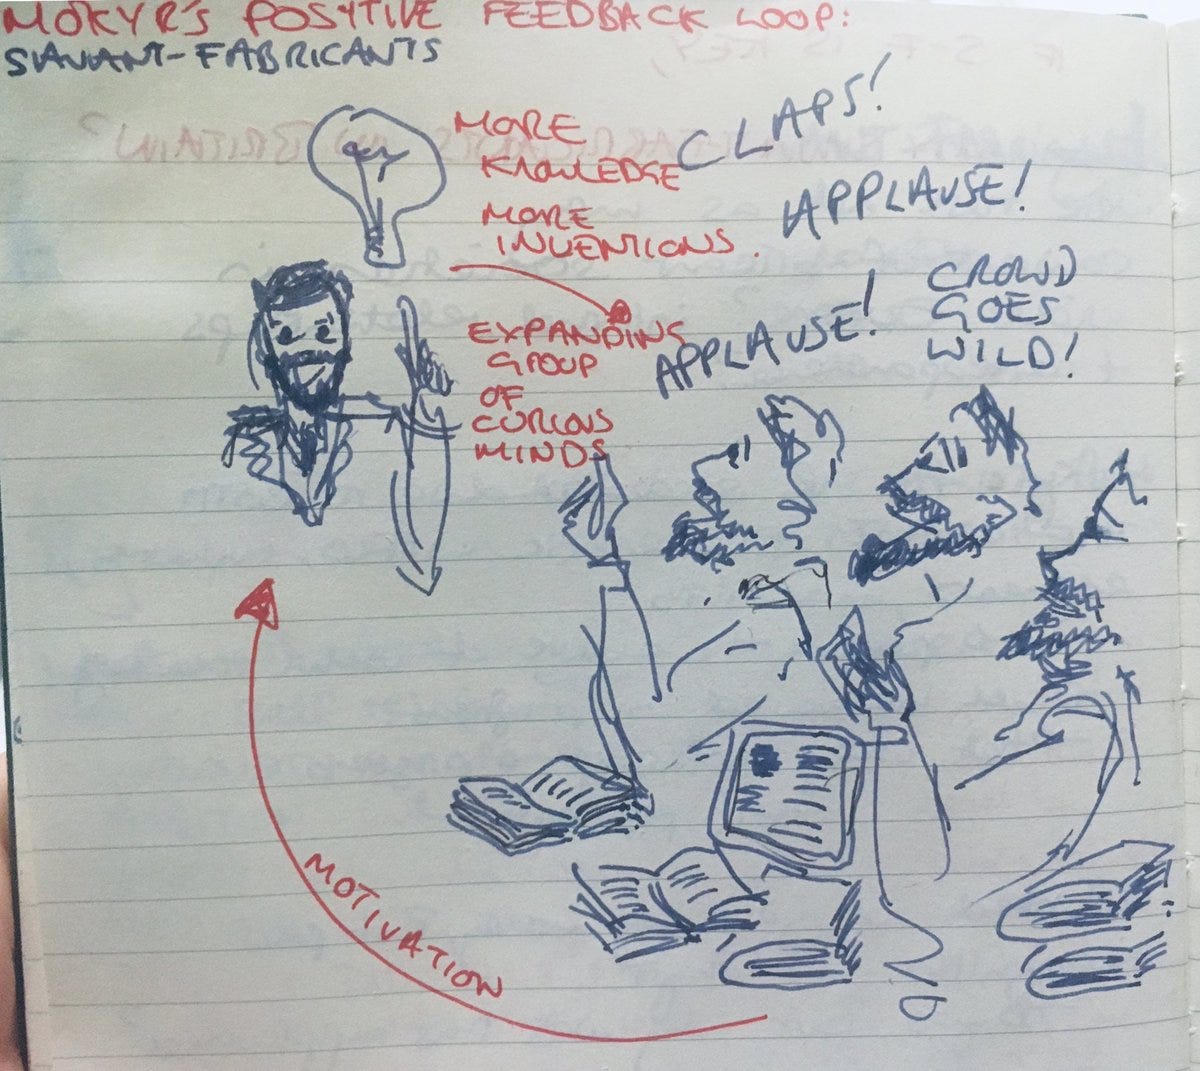 MOKYR'S POSYTIVE FEEDBACK LOOP:
SAVANT-FABRICANTS
MORE
KNOWLEDGE
MORE
INVENTIONS.
CLAPS!
APPLAUSE!
CROWD
GOES
WILD!
APPLAUSE!
EXPANDING
GROUP
OF
CURIOUS
MINDS
MOTIVATION